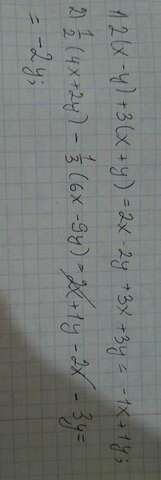 1) 2(x - y) + 3(x + y) = 2x - 2y + 3x + 3y = -1x + 1y;
2) 1/2 (4x + 2y) - 1/3 (6x - 9y) = 2x + 1y - 2x - 3y =
= -2y;